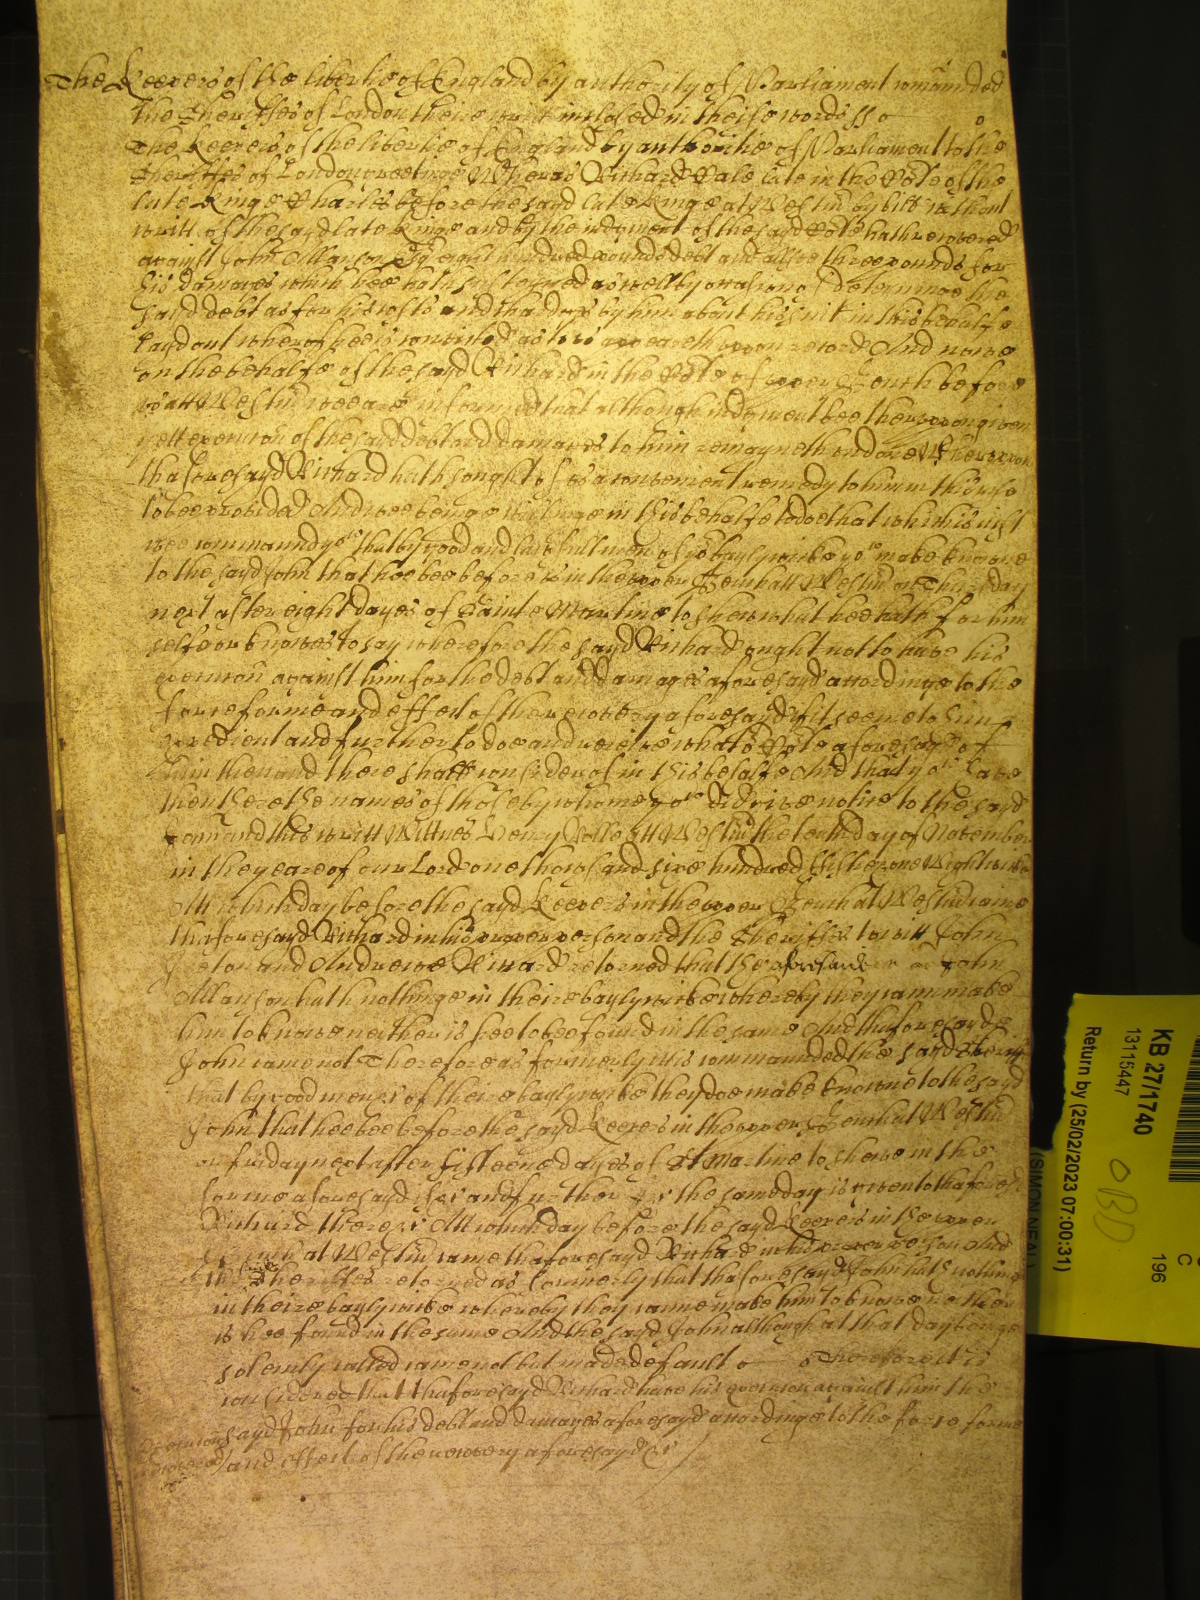 The Keepers of the libertie of England by authority of Parliament commanded
the Sheriffes of London theire writt inclosed in theise words ss
The Keepers of the libertie of England by authoritie of Parliament to the
Sheriffes of London greetinge Whereas Richard Vale late in the Co^rte of the
late Kinge Charles before the sayd late Kinge at Westm by bill without
writt of the sayd late Kinge and by the iudgment of the sayd Co^rte hath recovered
against John Allanson eight hundred pounds debt and allsoe three pounds for
his damages which hee hath susteyned as well by occasion of deteyninge the
sayd debt as for his costs and chardges by him about his suit in this behalfe
layd out wherof hee is convicted as to us appeareth uppon record And nowe
on the behalfe of the sayd Richard in the Co^rte of upper Bench before
us att Westm wee are informed that although iudgment bee thereuppon given
yett execucion of the sayd debt and damages to him remayneth undone Wheruppon
thaforesayd Richard hath sought of us a convenient remedy to him in this case
to bee provided And wee beinge willinge in this behalfe to doe that which is iust
wee command yo^w that by good and lawfull men of yo^r baylywicke yo^w make knowne
to the sayd John that hee bee before us in the upper Bench att Westm on Thursday
next after eight dayes of Sainte Martine to shew what hee hath for him
selfe or knowes to say wherefore the sayd Richard ought not to have his
execucion against him for the debt and damages aforesayd accordinge to the
force forme and effect of the recovery aforesayd if it seeme to him
expedient and further to doe and receive what o^r Co^rte aforesayd of
him then and there shall consider of in this behalfe And that yo^w have
then there the names of those by whome yo^w did give notice to the sayd
John and this writt Wittnes Henry Rolle att Westm the tenth day of November
in the yeare of our Lord one thousand sixe hundred fiftie one Wightwicke
Att which day before the sayd Keepers in the upper Bench at Westm came
thaforesayd Richard in his proper person and the Sheriffes to witt John
and Andrewe Ricard retorned that the aforesaid John
Allanson hath nothinge in theire baylywicke whereby they cann make
him to knowe neither is hee to bee found in the same And thaforesayd
John came not Therefore as formerly itt is commaunded the sayd Sheriffes
that by good men &c of theire baylywicke they doe make knowne to the sayd
John that hee bee before the sayd Keepers in the upper Bench at Westm
on friday next after fifteene dayes of St Martine to shewe in the
forme aforesayd if &c and further &c the same day is given to thaforesd
Richard there &c Att which day before the sayd Keepers in the upper
Bench at Westm came thaforesayd Richard in his proper person And
the Sheriffes retorned as formerly that thaforesayd John hath nothing
in theire baylywicke whereby they cann make him to knowe neither
is hee found in the same And the sayd John although at that day beinge
solemly called came not but made default Therefore it is
considered that thaforesayd Richard have his execucion against him the
sayd John for his debt and damages aforesayd accordinge to the force forme
and effect of the recovery aforesayd &c
Execucion
KB 27/1740
13115447
Return by (25/02/2023 07:00:31)
(SIMON NEAL)
C
196
OBD